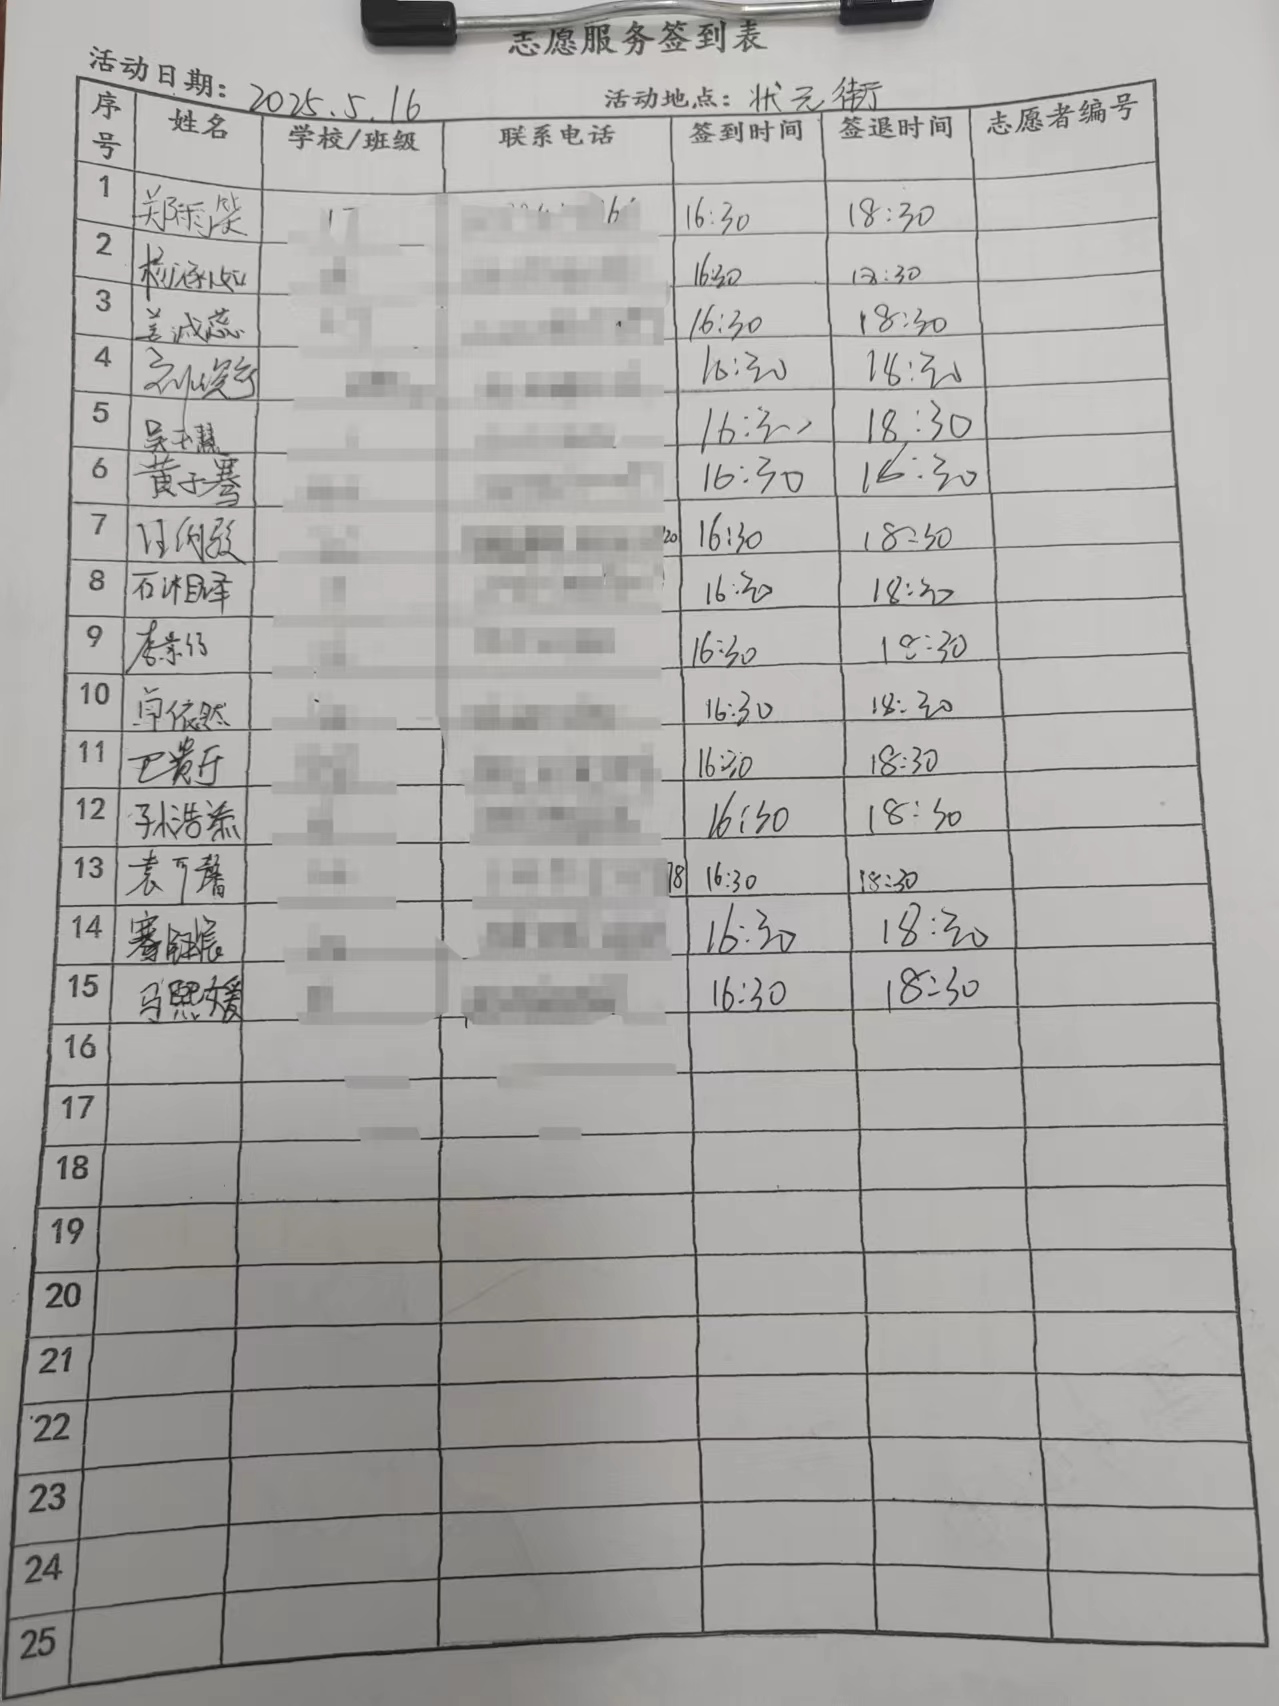 志愿服务签到表
活动日期: 2025.5.16 活动地点: 状元街
序号 姓名 学校/班级 联系电话 签到时间 签退时间 志愿者编号
1 郑 16:30 18:30
2 16:30 18:30
3 姜诚蕊 16:30 18:30
4 16:30 18:30
5 吴玉慧 16:30 18:30
6 黄子骞 16:30 18:30
7 20 16:30 18:30
8 石沐泽 16:30 18:30
9 李 16:30 18:30
10 卓依然 16:30 18:30
11 16:30 18:30
12 孙浩添 16:30 18:30
13 袁可馨 78 16:30 18:30
14 16:30 18:30
15 马熙媛 16:30 18:30
16
17
18
19
20
21
22
23
24
25